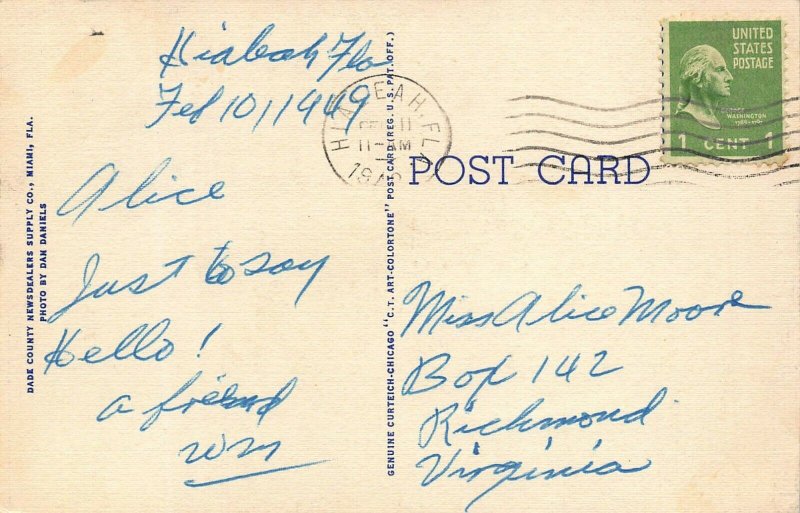 Hialeah Fla
Feb 10, 1949
Alice
Just to say
Hello!
a friend
wm
DADE COUNTY NEWSDEALERS SUPPLY CO., MIAMI, FLA.
PHOTO BY DAN DANIELS
GENUINE CURTEICH-CHICAGO "C.T. ART-COLORTONE" POST CARD (REG. U.S. PAT. OFF.)
HIALEAH, FLA
11
11-AM
UNITED
STATES
POSTAGE
GEORGE
WASHINGTON
1789-1797
1 CENT 1
POST CARD
Miss Alice Moore
Box 142
Richmond
Virginia